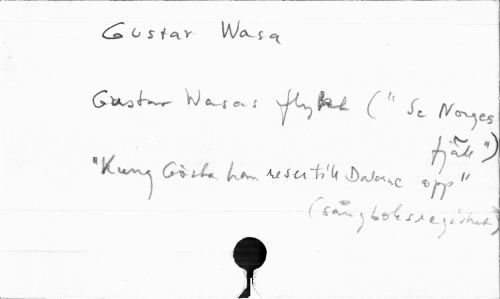 Gustav Wasa
Gustav Wasas flykt ("Se Norges
fjäll")
"Kung Gösta han reser till Dalarne opp"
(sångboksregistret)